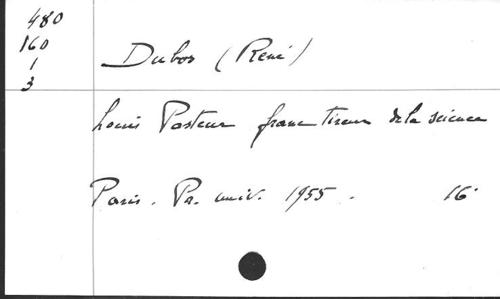 480
160
1
3
Dubos (René)
Louis Pasteur franc tireur de la science
Paris. Pr. univ. 1955. 16°